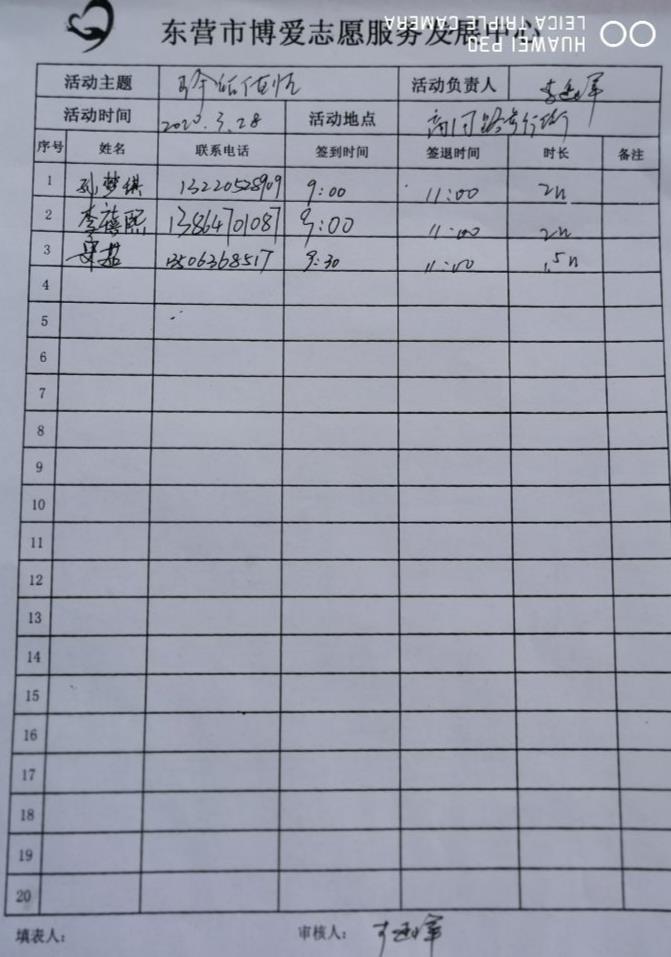 东营市博爱志愿服务发展中心
HUAWEI P30
LEICA TRIPLE CAMERA
活动主题 活动负责人
活动时间 2020.3.28 活动地点
序号 姓名 联系电话 签到时间 签退时间 时长 备注
1 孙梦琪 13220528909 9:00 11:00 2h
2 李蓓熙 13864701087 9:00 11:00 2h
3 13506368517 9:30 11:00 1.5h
4
5
6
7
8
9
10
11
12
13
14
15
16
17
18
19
20
填表人： 审核人：